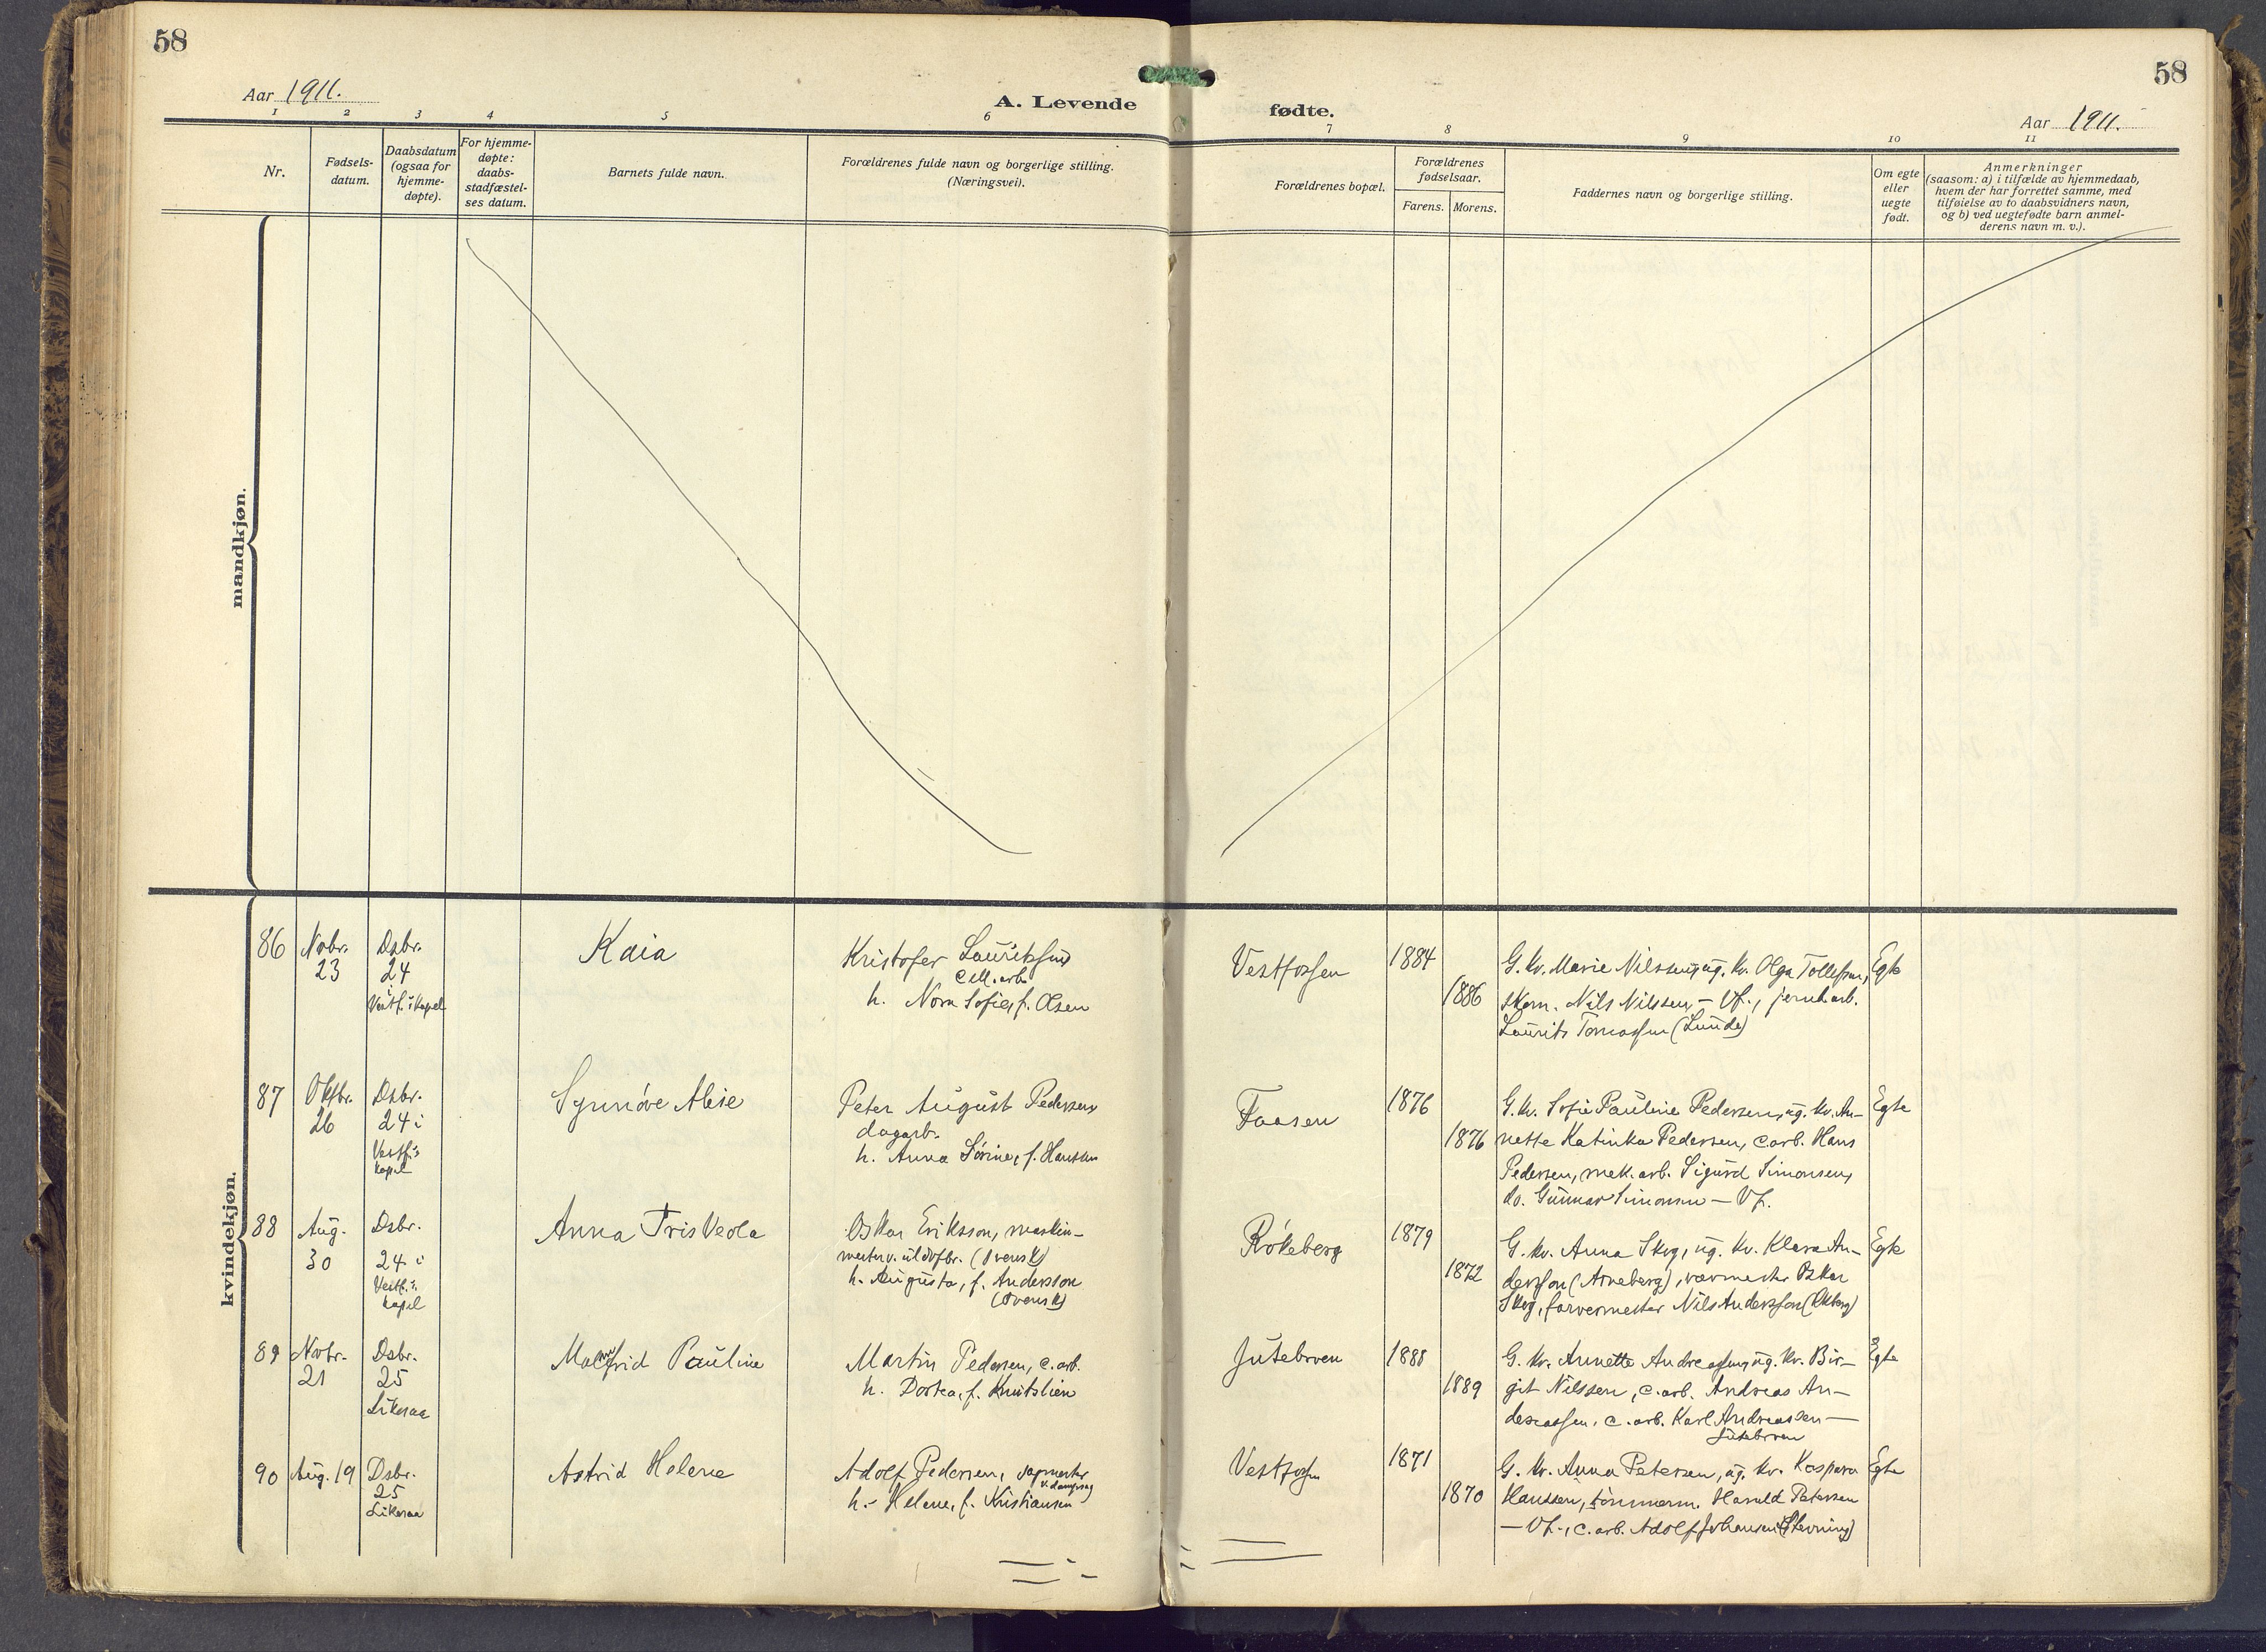 58
58
Aar 1911.
A. Levende
fødte.
Aar 1911.
1 2 3 4 5 6
7 8 9 10 11
Nr.
Fødsels-
datum.
Daabsdatum
(ogsaa for
hjemme-
døpte).
For hjemme-
døpte:
daabs-
stadfæstel-
ses datum.
Barnets fulde navn.
Forældrenes fulde navn og borgerlige stilling.
(Næringsvei).
Forældrenes bopæl.
Forældrenes
fødselsaar.
Farens. Morens.
Faddernes navn og borgerlige stilling.
Om egte
eller
uegte
født.
Anmerkninger
(saasom: a) i tilfælde av hjemmedaab,
hvem der har forrettet samme, med
tilføielse av to daabsvidners navn,
og b) ved uegtefødte barn anmel-
derens navn m. v.).
mandkjøn.
kvindekjøn.
86
Novbr.
23
Dsbr.
24
i
Vestf.'s kapel
Kaia
Kristofer Lauritssen
cell. arb.
h. Nora Sofie, f. Olsen
Vestfossen
1884
1886
G. kv. Marie Nilssen, ug. kv. Olga Tollefsen,
skom. Nils Nilssen – Vf., jernb.arb.
Laurits Tomassen (Lunde)
Egte
87
Oktbr.
26
Dsbr.
24 i
Vestf.'s
kapel
Synnöve Alise
Peter August Pedersen
dagarb.
h. Anna Sörine, f. Hanssen
Faasen
1876
1876
G. kv. Sofie Pauline Pedersen, ug. kv. An-
nette Katinka Pedersen, c.arb. Hans
Pedersen, mek. arb. Sigurd Simonsen,
do. Gunnar Simonsen – Vf.
Egte
88
Aug.
30
Dsbr.
24 i
Vestf.'s
kapel
Anna Iris Veola
Oskar Eriksson, maskin-
mester v. uldvfbr. (svensk)
h. Augusta, f. Andersson
(svensk)
Rökeberg
1879
1872
G. kv. Anna Skog, ug. kv. Klara An-
dersson (Arneberg), vævmester Oskar
Skog, farvermester Nils Andersson
Egte
89
Novbr.
21
Dsbr.
25
Fiskeraa
Pauline
Martin Pedersen, c. arb.
h. Dortea, f. Knutslien
Juteboven
1888
1889
G. kv. Annette Andreassen, ug. kv. Bir-
git Nilssen, c. arb. Andreas An-
dreassen, c. arb. Karl Andreassen –
Juteboven
Egte
90
Aug. 19
Dsbr.
25
Fiskeraa
Astrid Helene
Adolf Pedersen, sagmester
v. dampsag
h. Helene, f. Kristiansen
Vestfossen
1871
1870
G. kv. Anna Petersen, ug. kv. Kaspara
Hanssen, tömmerm. Harald Petersen
– Vf., c. arb. Adolf Johansen
Egte